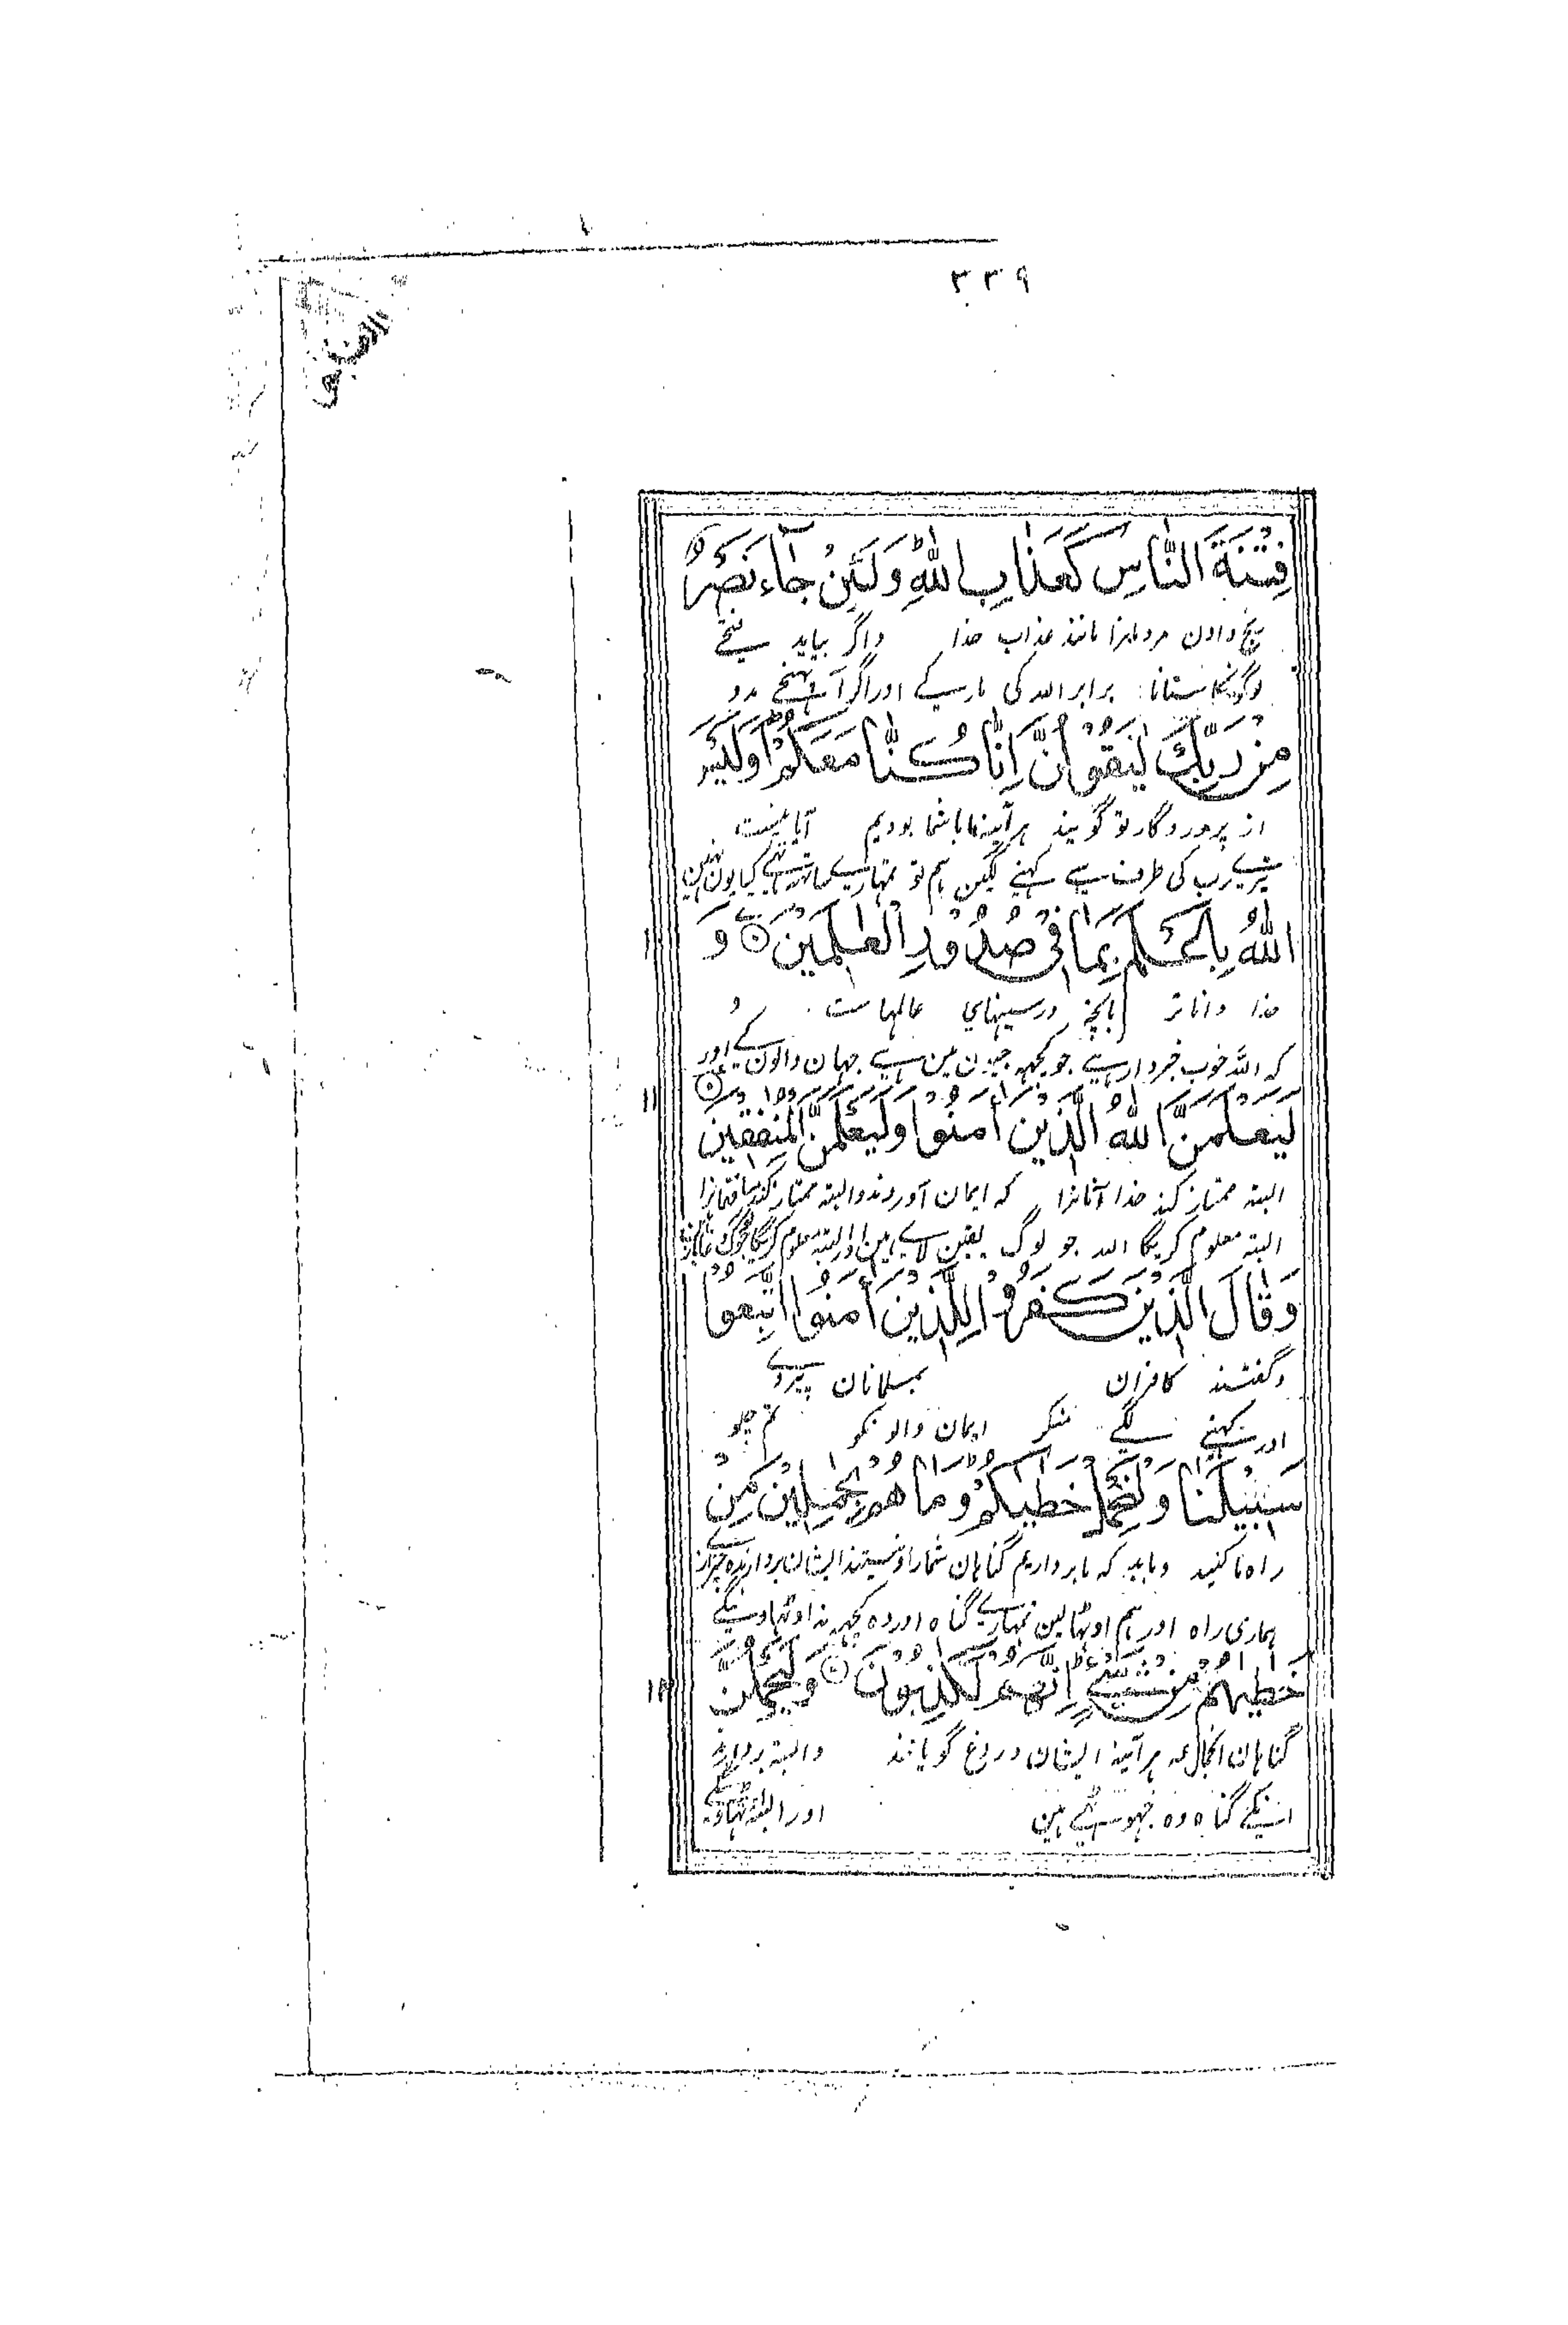 ۳۳۹
فِتْنَةَ النَّاسِ كَعَذَابِ اللّٰهِ ؕ وَلَئِنْ جَآءَ نَصْرٌ
رنج دادن مردمانرا مانند عذاب خدا واگر بیاید فتحے
لوگونکا ستانا برابر الله کی مار کے اور اگر آ پہنچے مدد
مِنْ رَبِّكَ لَيَقُوْلُنَّ اِنَّا كُنَّا مَعَكُمْ ؕ اَوَلَيْسَ
از پروردگار تو گویند ہر آئینہ ما باشما بودیم آیا نیست
تیرے رب کی طرف سے کہنے لگین ہم تو تمہارے ساتھ تھے کیا یون نہین
اللّٰهُ بِاَعْلَمَ بِمَا فِیْ صُدُوْرِ الْعٰلَمِيْنَ ۝ وَ
خدا داناتر بانچہ در سینہای عالمہاست و
کہ اللّٰہ خوب خبردار ہے جو کچہہ جیون مین ہے جہان والون کے اور
۱۱
لَيَعْلَمَنَّ اللّٰهُ الَّذِيْنَ اٰمَنُوْا وَلَيَعْلَمَنَّ الْمُنٰفِقِيْنَ ۝
البتہ ممتاز کند خدا آنانرا کہ ایمان آوردند والبتہ ممتاز کند منافقانرا
البتہ معلوم کریگا اللہ جو لوگ یقین لائے ہین اور البتہ معلوم کریگا جو لوگ دغاباز ہین
وَقَالَ الَّذِيْنَ كَفَرُوْا لِلَّذِيْنَ اٰمَنُوا اتَّبِعُوْا
وگفتند کافران بمسلمانان پیروی
اور کہنے لگے منکر ایمان والونکو تم چلو
سَبِيْلَنَا وَلْنَحْمِلْ خَطٰيٰكُمْ ؕ وَمَا هُمْ بِحٰمِلِيْنَ مِنْ
راہ ما کنید وباید کہ ما برداریم گناہان شمارا ونیستند ایشان بردارندہ چیزے از
ہماری راہ اور ہم اوٹھا لین تمہارے گناہ اور وہ کچہہ نہ اوٹھاوینگے
۱۲
خَطٰيٰهُمْ مِّنْ شَيْءٍ ؕ اِنَّهُمْ لَكٰذِبُوْنَ ۝ وَلَيَحْمِلُنَّ
گناہان انجماعہ ہر آئینہ ایشان دروغ گویانند والبتہ بردارند
انکے گناہ وہ جہوٹھے ہین اور البتہ اوٹھاوینگے